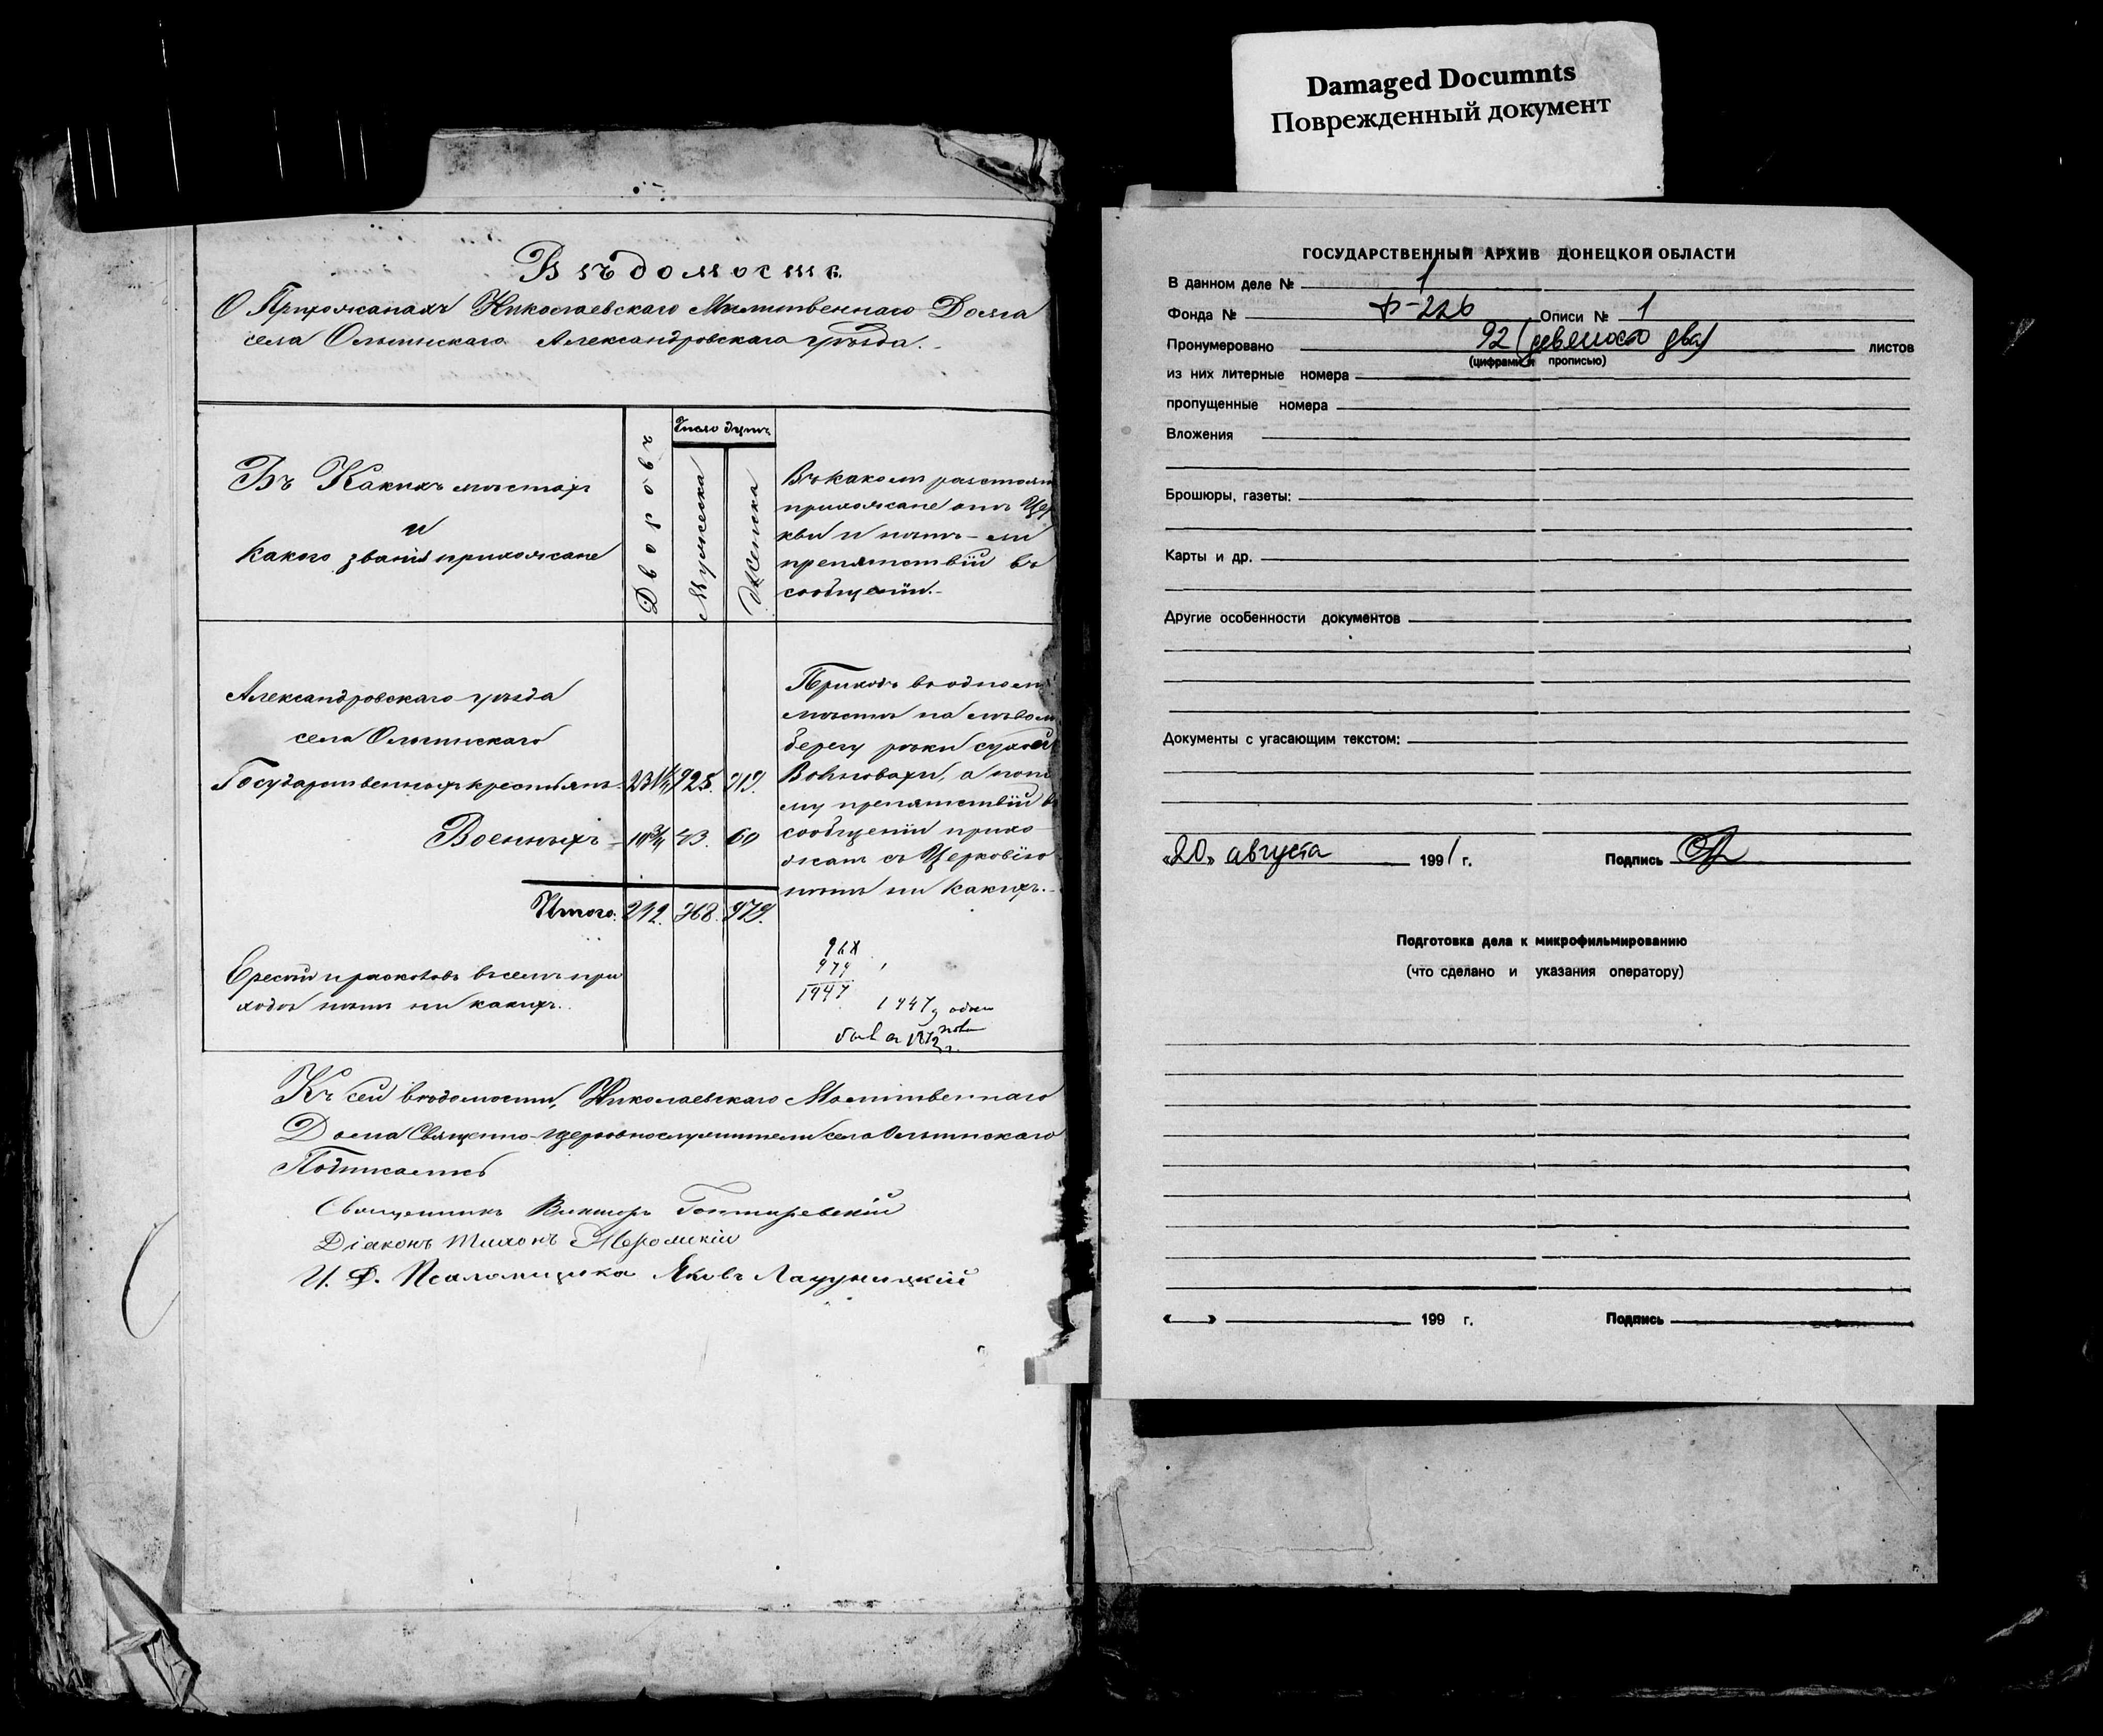 Вѣдомость
О Прихожанахъ Николаевскаго Молитвеннаго Дома
села Ольгинскаго Александровскаго уѣзда.
Въ Какихъ мѣстахъ
и
какого званія прихожане
Дворовъ
Число душъ
Мужеска
Женска
Въ какомъ разстоян
прихожане отъ Цер
кви и нѣтъ-ли
препятствій въ
сообщеніи.
Александровскаго уѣзда
села Ольгинскаго
Государственныхъ крестьянъ 231¼ 925. 919.
Военныхъ 10¾ 43. 60
Итого: 242. 968. 979.
Приходъ въ одномъ
мѣстѣ на лѣвом
берегу рѣки сухой
Волновахи, а пото
му препятствій въ
сообщеніи прихо
жанъ съ Церковію
нѣтъ ни какихъ.
Ересей и расколовъ въ семъ при
ходѣ нѣтъ ни какихъ.
968
979
1947
1947
Къ сей вѣдомости, Николаевскаго Молитвеннаго
Дома Священно-церковнослужители села Ольгинскаго
Подписались
Священникъ Викторъ Гонтаревскій
Діаконъ Тихонъ
И. Д. Псаломщика Яковъ
Damaged Documnts
Поврежденный документ
ГОСУДАРСТВЕННЫЙ АРХИВ ДОНЕЦКОЙ ОБЛАСТИ
В данном деле № 1
Фонда № Ф-226 Описи № 1
Пронумеровано 92 (девяносто два) листов
(цифрами и прописью)
из них литерные номера
пропущенные номера
Вложения
Брошюры, газеты:
Карты и др.
Другие особенности документов
Документы с угасающим текстом:
«20» августа 1991 г. Подпись
Подготовка дела к микрофильмированию
(что сделано и указания оператору)
« » 199 г. Подпись